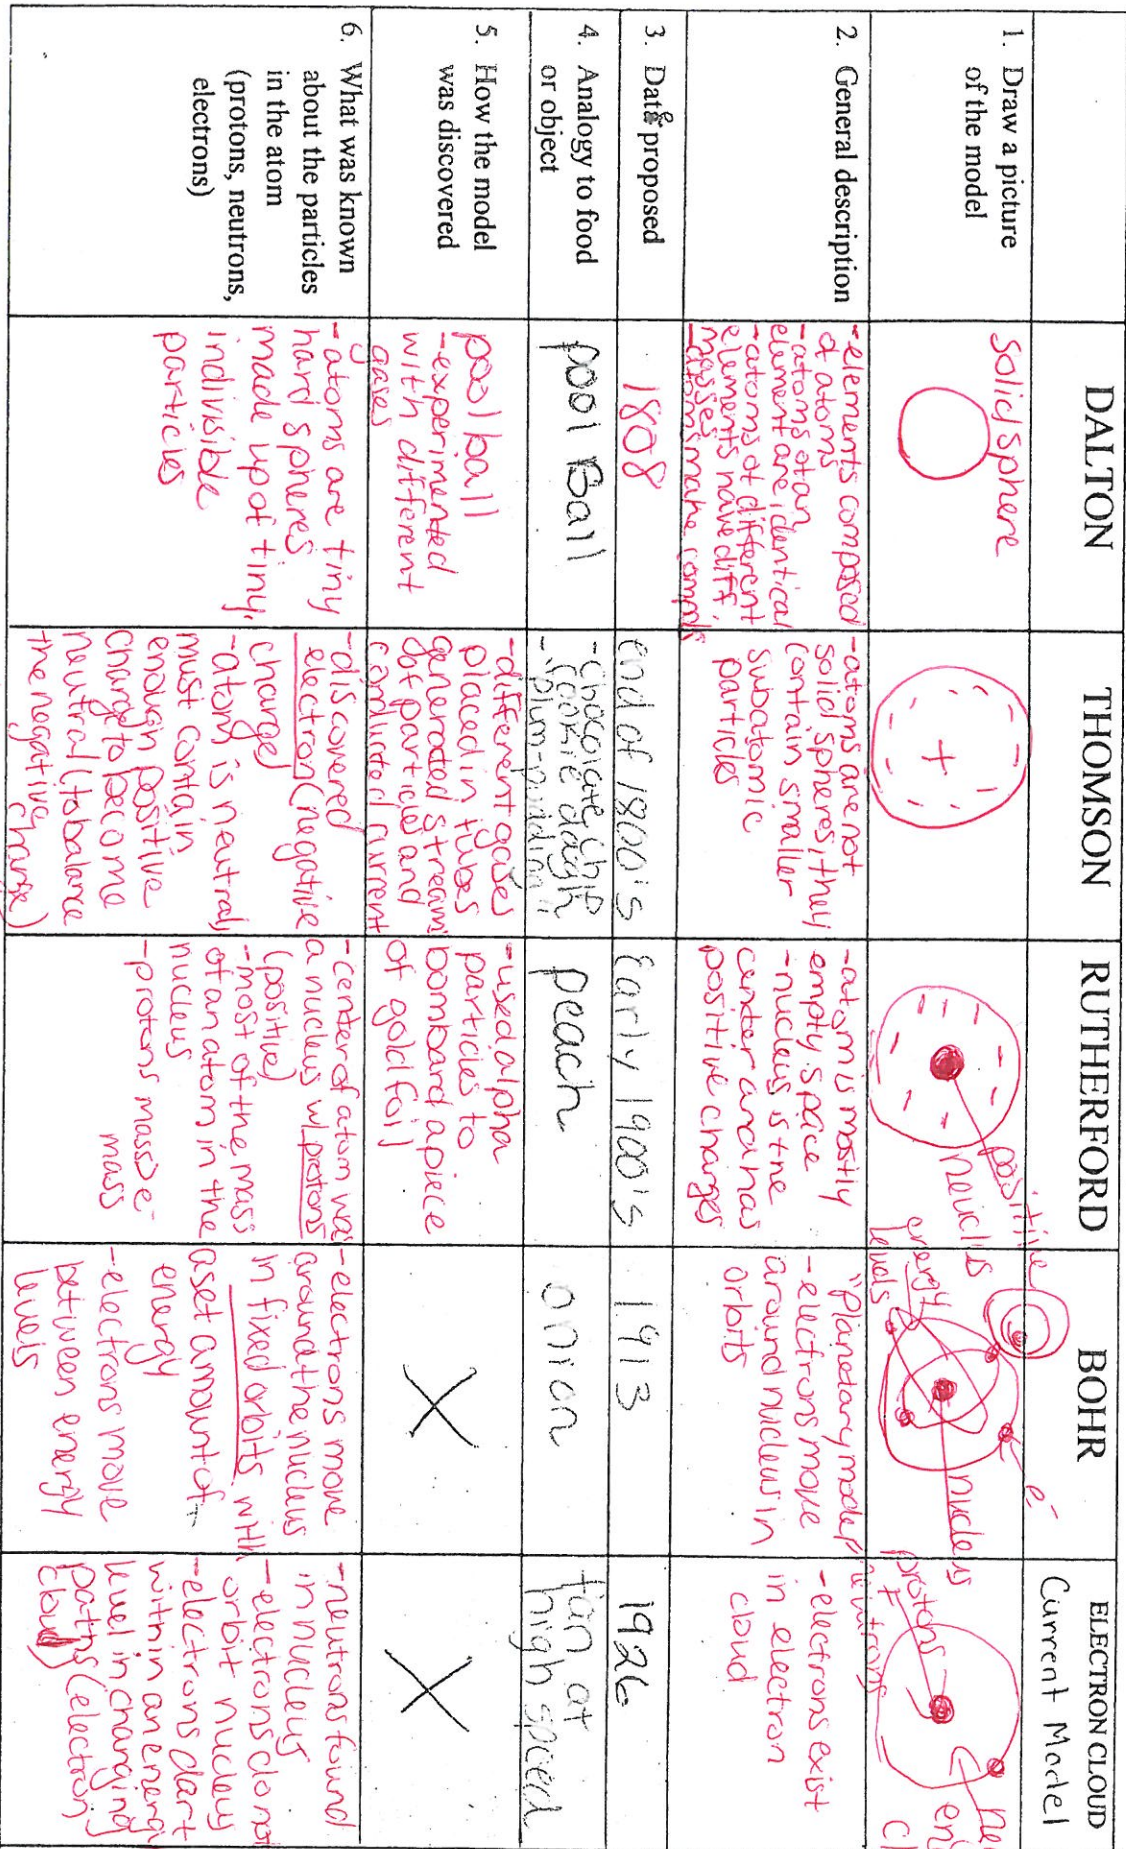 DALTON
THOMSON
RUTHERFORD
BOHR
ELECTRON CLOUD
Current Model
1. Draw a picture
of the model
solid sphere
+
positive
nucleus
energy
levels
e-
nucleus
protons
+
neutrons
2. General description
-elements composed
of atoms
-atoms of an
element are identical
-atoms of different
elements have diff.
masses
-atoms make compds
-atoms are not
solid spheres, they
contain smaller
subatomic
particles
-atom is mostly
empty space
-nucleus is the
center and has
positive charges
"Planetary model"
-electrons move
around nucleus in
orbits
-electrons exist
in electron
cloud
3. Date proposed
1808
end of 1800's
Early 1900's
1913
1926
4. Analogy to food
or object
pool Ball
-chocolate chip
cookie dough
-"plum-pudding"
peach
onion
fan at
high speed
5. How the model
was discovered
pool ball
-experimented
with different
gases
-different gases
placed in tubes
generated stream
of particles and
conducted current
-used alpha
particles to
bombard a piece
of gold foil
6. What was known
about the particles
in the atom
(protons, neutrons,
electrons)
-atoms are tiny
hard spheres
made up of tiny,
indivisible
particles
-discovered
electron (negative
charge)
-atom is neutral,
must contain
enough positive
charge to become
neutral (to balance
the negative
charge)
-center of atom was
a nucleus w/ protons
(positive)
-most of the mass
of an atom in the
nucleus
-protons mass > e-
mass
-electrons move
around the nucleus
in fixed orbits with
a set amount of
energy
-electrons move
between energy
levels
-neutrons found
in nucleus
-electrons do not
orbit nucleus
-electrons dart
within an energy
level in changing
paths (electron
cloud)